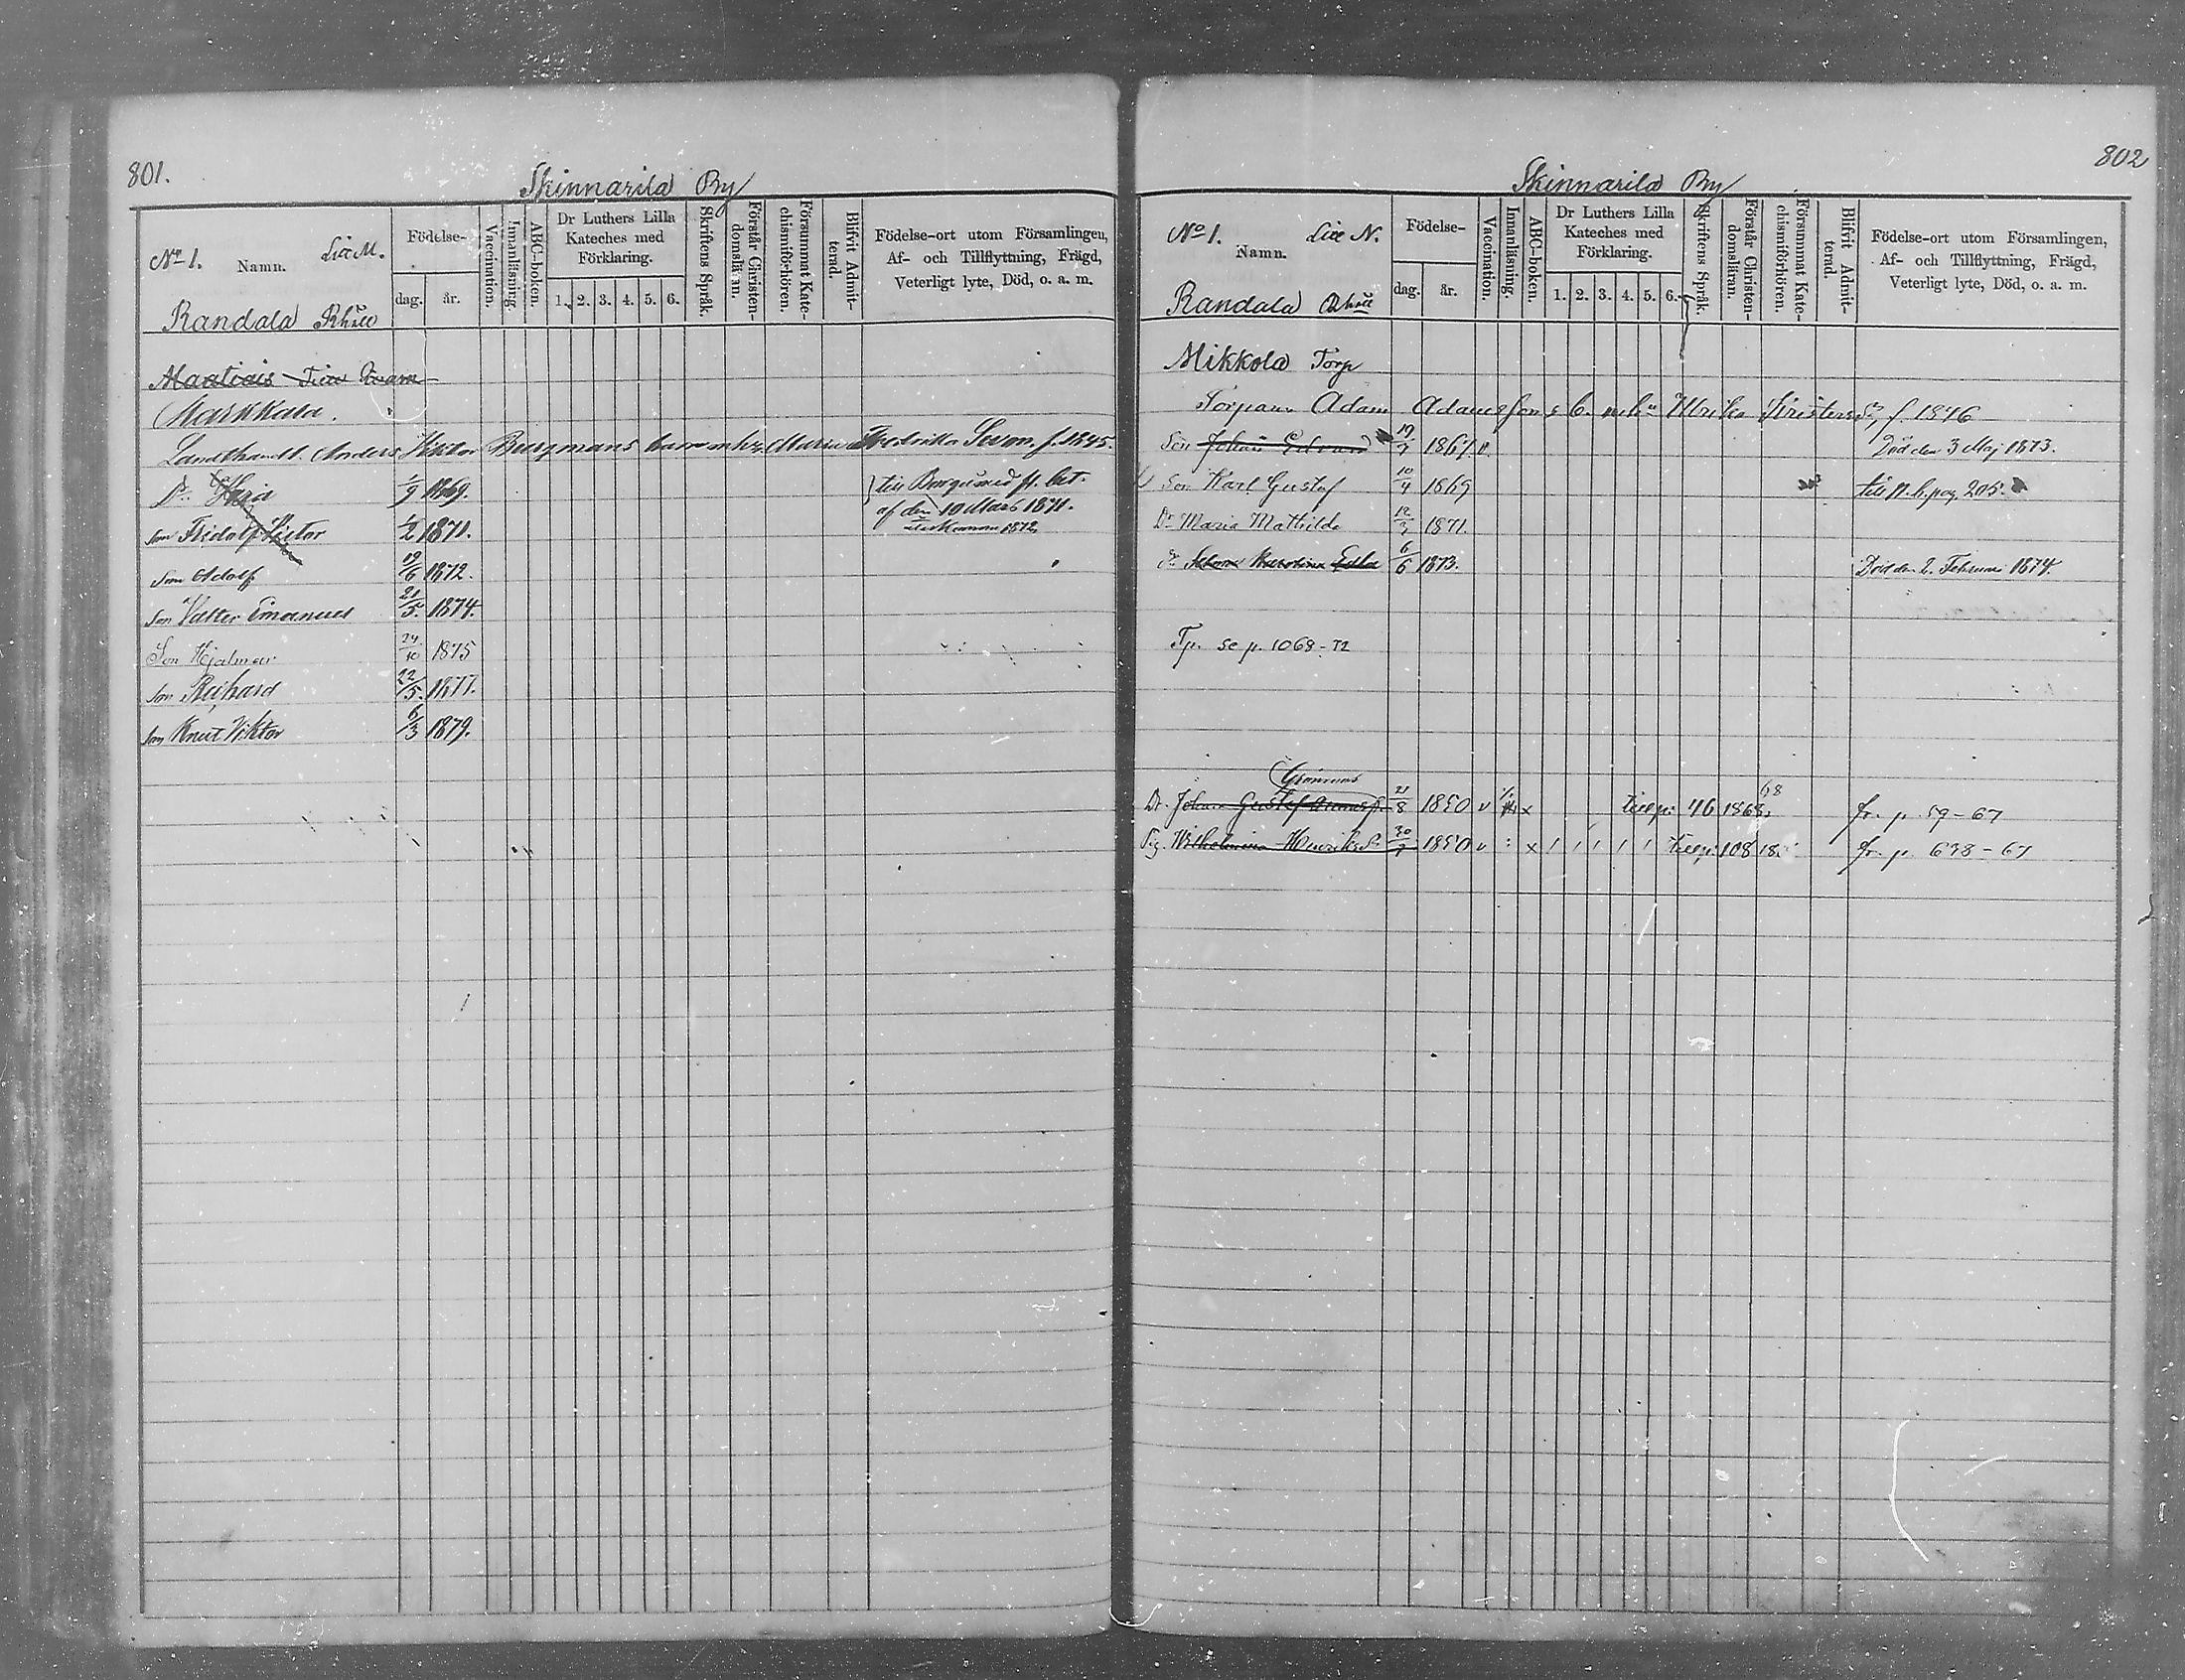 801.
Skinnarila By
No 1. Namn. Litt M.
Randala Rhåll
Födelse-
dag. år.
Vaccination.
Innanläsning.
ABC-boken.
Dr Luthers Lilla Kateches med Förklaring.
1. 2. 3. 4. 5. 6.
Skriftens Språk.
Förstår Christendomsläran.
Försummat Katechismiförhören.
Blifvit Admitterad.
Födelse-ort utom Församlingen,
Af- och Tillflyttning, Frägd,
Veterligt lyte, Död, o. a. m.
Markkala.
Landthandl. Anders Viktor Bergmans barn m. h. Maria Fredrika Sevon, f. 1845.
Dr. 1/9 1869. till Borgå med fl. bet.
af den 10 Mars 1871.
Son Fridolf Victor 1/2 1871.
Son Adolf 19/6 1872.
Son Valter Emanuel 21/5. 1874.
Son Hjalmar 24/10 1875
Son Rikhard 22/5. 1877.
Son Knut Viktor 6/3 1879.
802
Skinnarila By
No 1. Namn. Litt N.
Randala Rhåll
Födelse-
dag. år.
Vaccination.
Innanläsning.
ABC-boken.
Dr Luthers Lilla Kateches med Förklaring.
1. 2. 3. 4. 5. 6.
Skriftens Språk.
Förstår Christendomsläran.
Försummat Katechismiförhören.
Blifvit Admitterad.
Födelse-ort utom Församlingen,
Af- och Tillflyttning, Frägd,
Veterligt lyte, Död, o. a. m.
Mikkola Torp
Torpar. Adam Adamssons b. m. h. Ulrika f. 1846
Son Johan Edvard 19/7 1867 v. Död den 3 Maj 1873.
Son Karl Gustaf 10/4 1869 till N. b. pag. 205.
Dr Maria Mathilda 12/3 1871.
Dr Karolina Edla 6/6 1873. Död den 2. Februari 1874.
Tp. se p. 1068-72
Grönroos
Dr. Johan Gustaf 21/8 1850 v x till p. 46 1868, fr. p. 59-67
Pig. Wilhelmina Henriksd. 30/7 1850 v x till p. 108 fr. p. 638-67